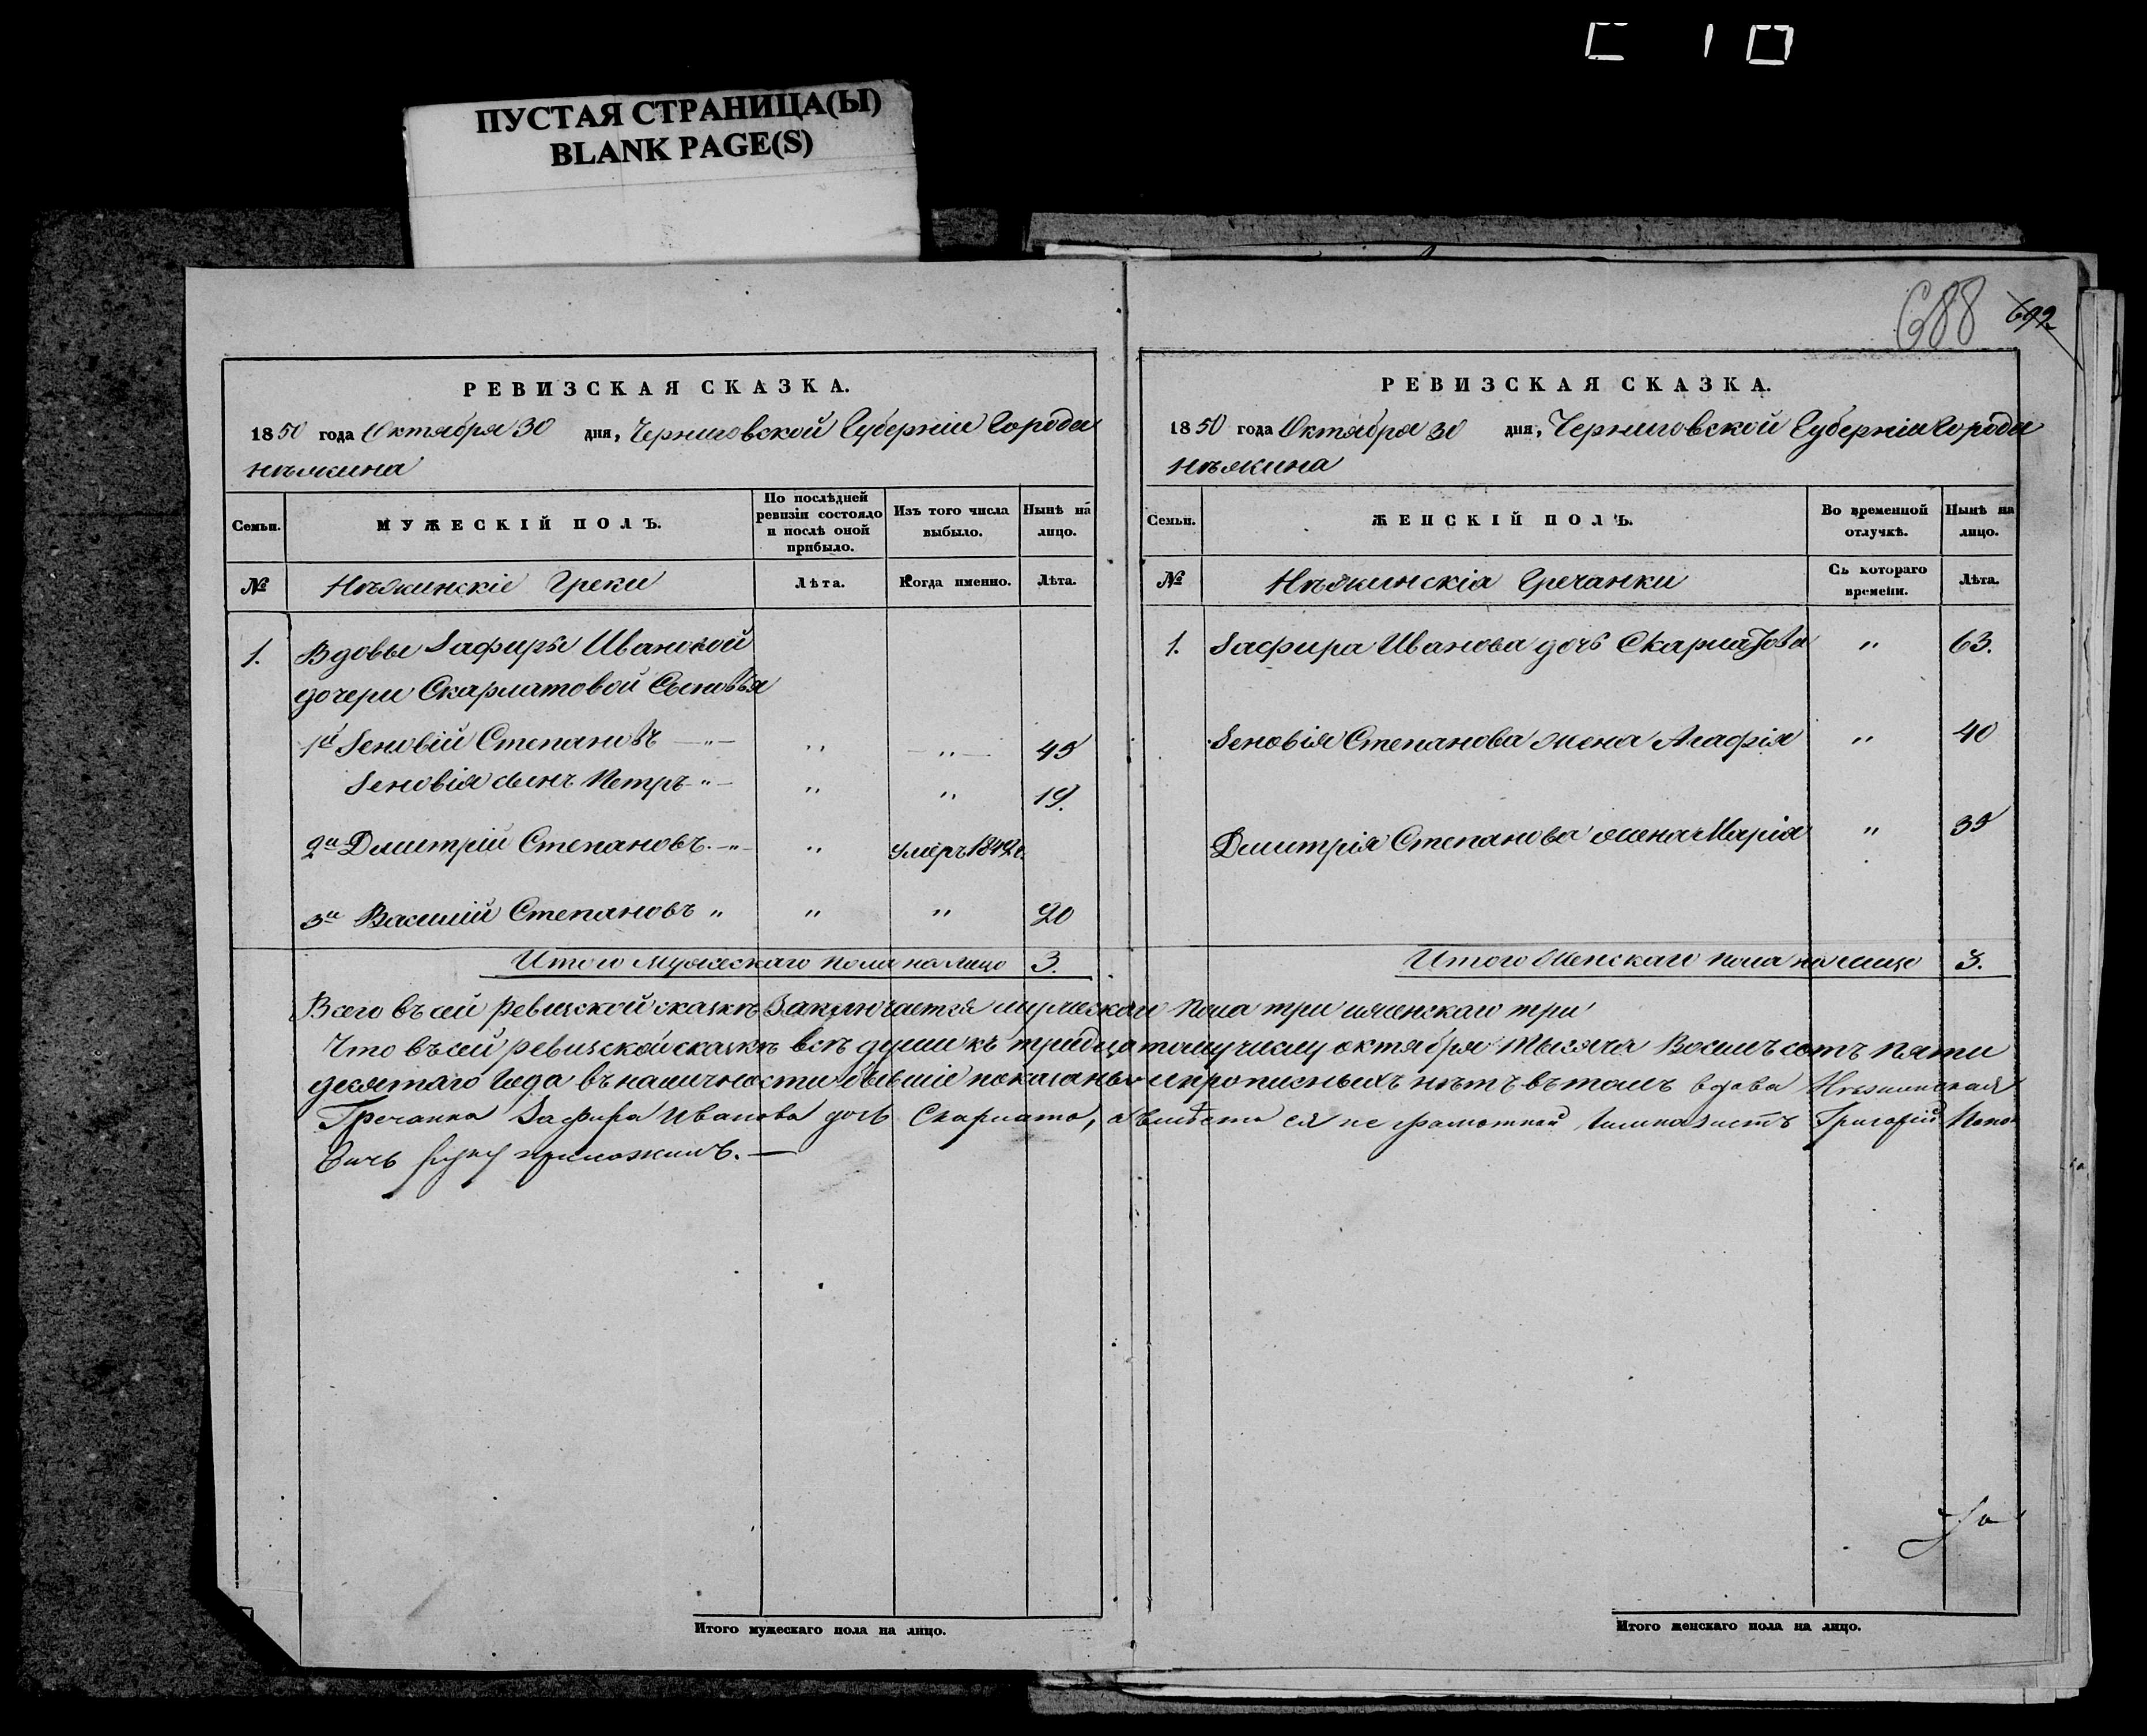 ПУСТАЯ СТРАНИЦА(Ы)
BLANK PAGE(S)
688 692
РЕВИЗСКАЯ СКАЗКА.
1850 года Октября 30 дня, Черниговской Губерніи Города
Нѣжина
Семьи.
МУЖЕСКІЙ ПОЛЪ.
По послѣдней ревизіи состояло и послѣ оной прибыло.
Изъ того числа выбыло.
Нынѣ на лицо.
№
Нѣжинскіе Греки
Лѣта.
Когда именно.
Лѣта.
1. Вдовы Зафиры Ивановой
дочери Скарлатовой Сыновья
1й Зеновій Степановъ — „ — „ — „ — 45
Зеновія сынъ Петръ - „ — „ „ 19.
2й Дмитрій Степановъ. - „ - „ умеръ 1842г.
3й Василій Степановъ „ „ „ 20
Итого мужескаго пола на лицо 3.
РЕВИЗСКАЯ СКАЗКА.
1850 года Октября 30 дня, Черниговской Губерніи Города
Нѣжина
Семьи.
ЖЕНСКІЙ ПОЛЪ.
Во временной отлучкѣ.
Нынѣ на лицо.
№
Нѣжинскія Гречанки
Съ котораго времени.
Лѣта.
1. Зафира Иванова дочь Скарлатова „ 63.
Зеновія Степанова жена Агафія „ 40
Дмитрія Степанова жена Марія „ 35
Итого Женскаго пола на лицо 3.
Всего въ сей ревизской сказкѣ Заключается мужескаго пола три и женскаго три
Что въ сей ревизской сказкѣ всѣ души къ тридцатому числу октября Тысяча Восемъ сотъ пяти
десятаго Года въ наличности бывшіе показаны и прописныхъ нѣтъ въ томъ вдова Нѣжинская
Гречанка Зафира Иванова дочь Скарлато, а вместо ея не грамотной Гимназистъ Григорій Попо
вичъ руку приложилъ. —
Итого мужескаго пола на лицо.
Итого женскаго пола на лицо.